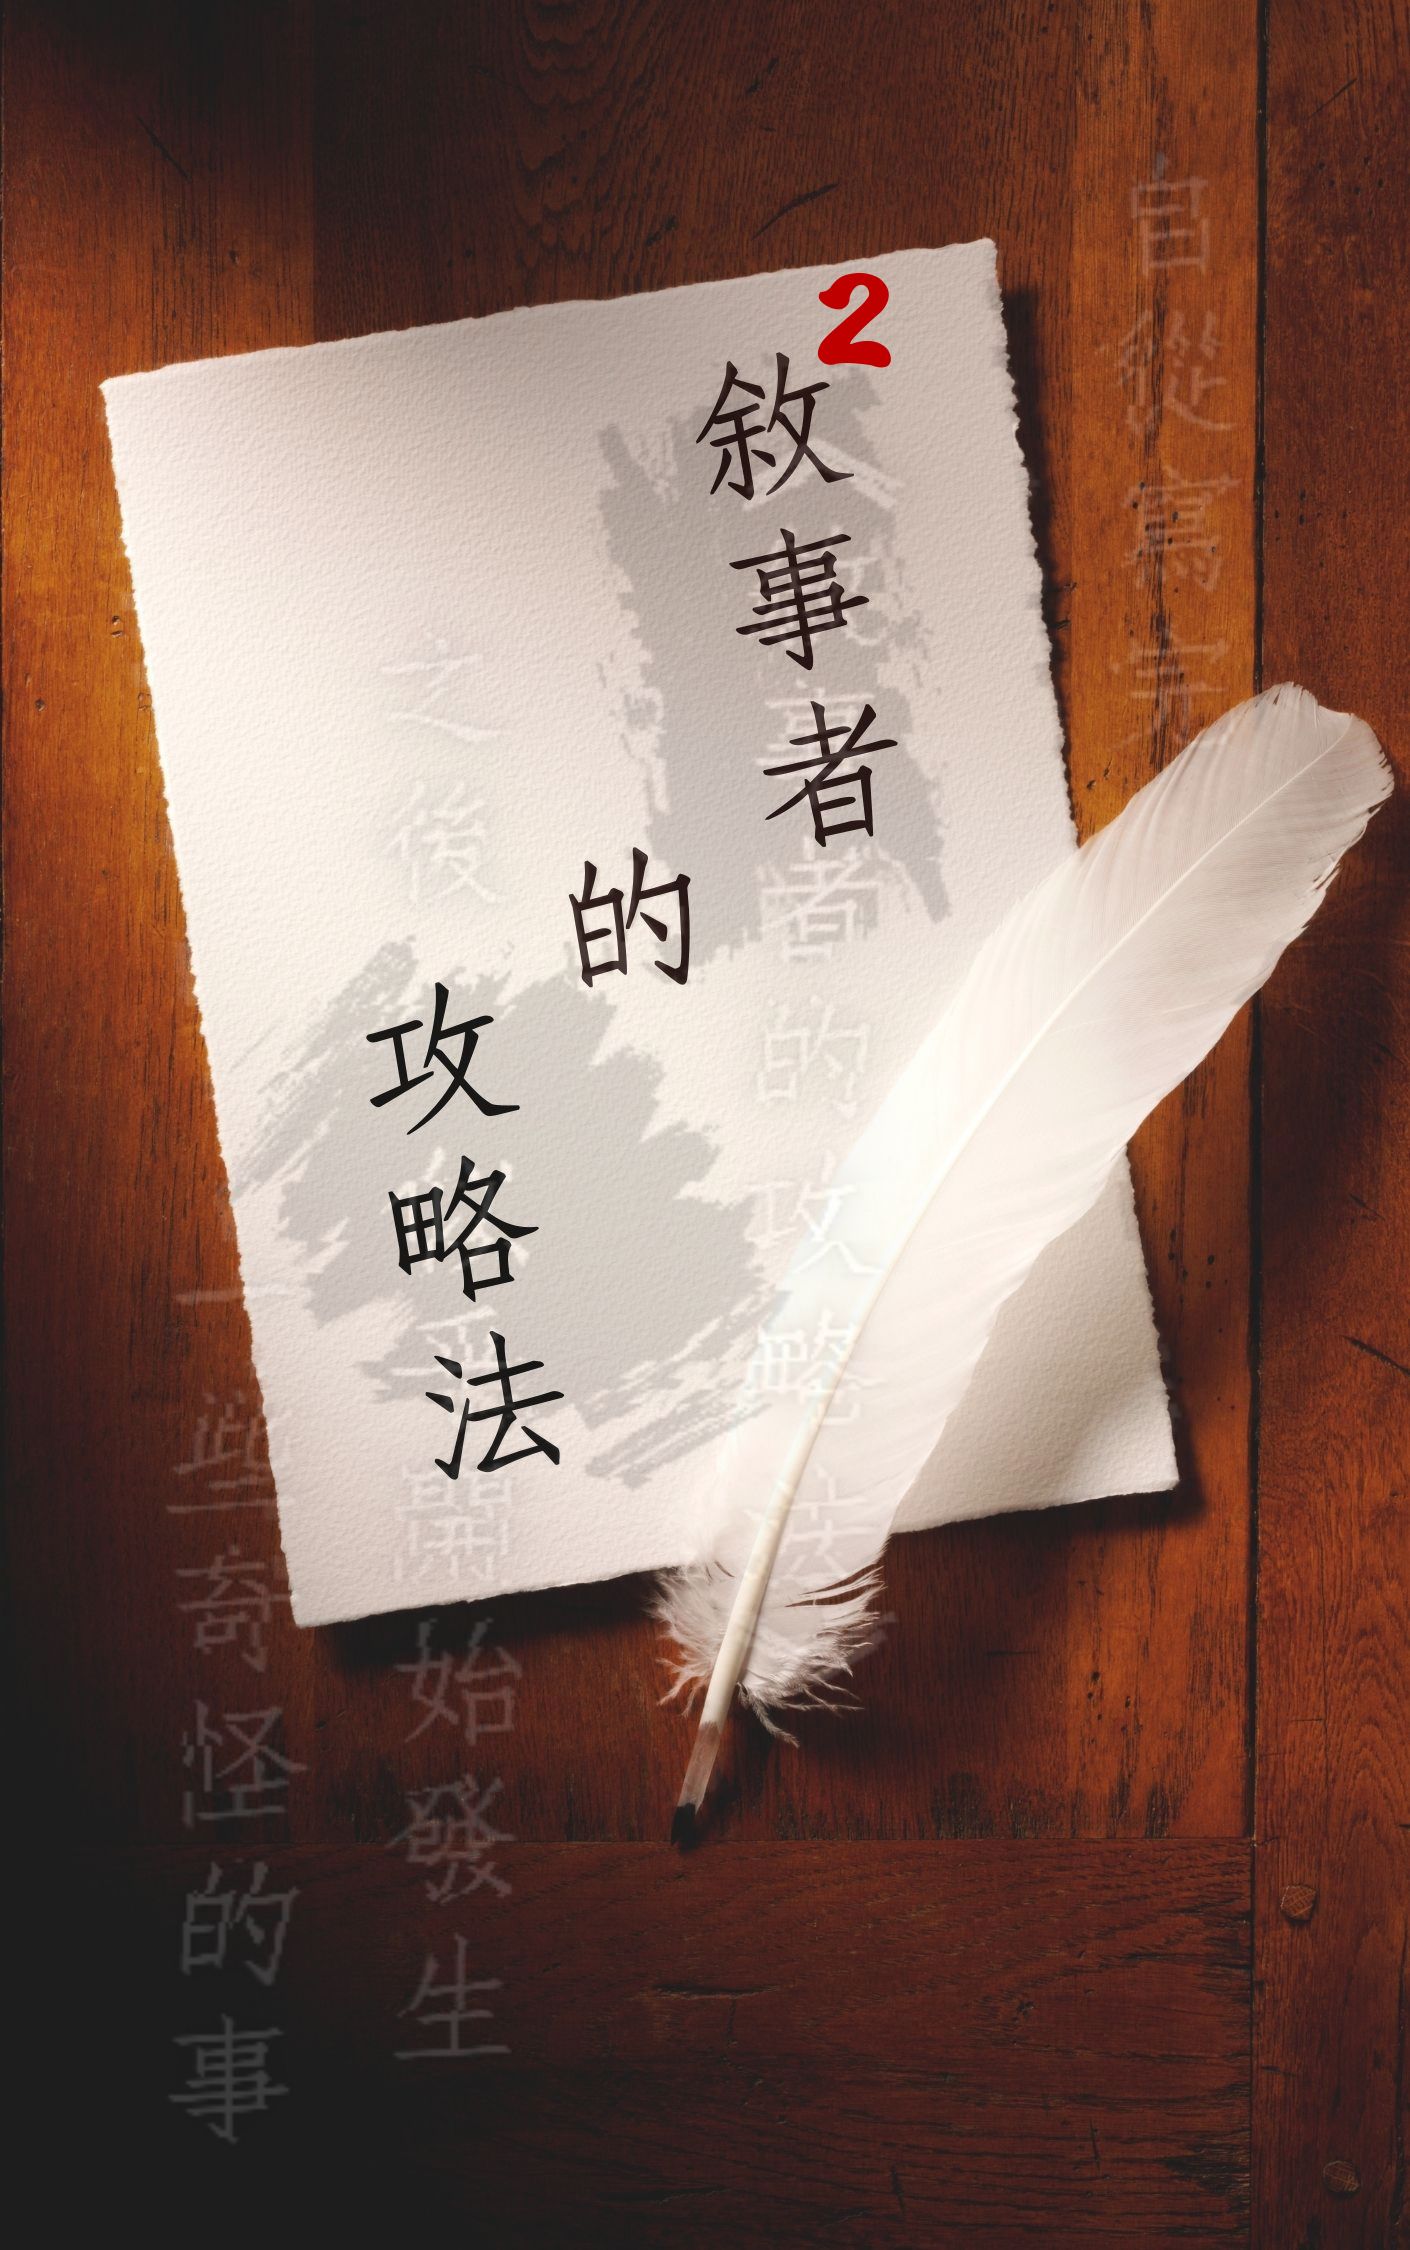 2
敘事者
的
攻略法
自從寫完
敘事者的攻略法
之後
似乎開始發生
一些奇怪的事